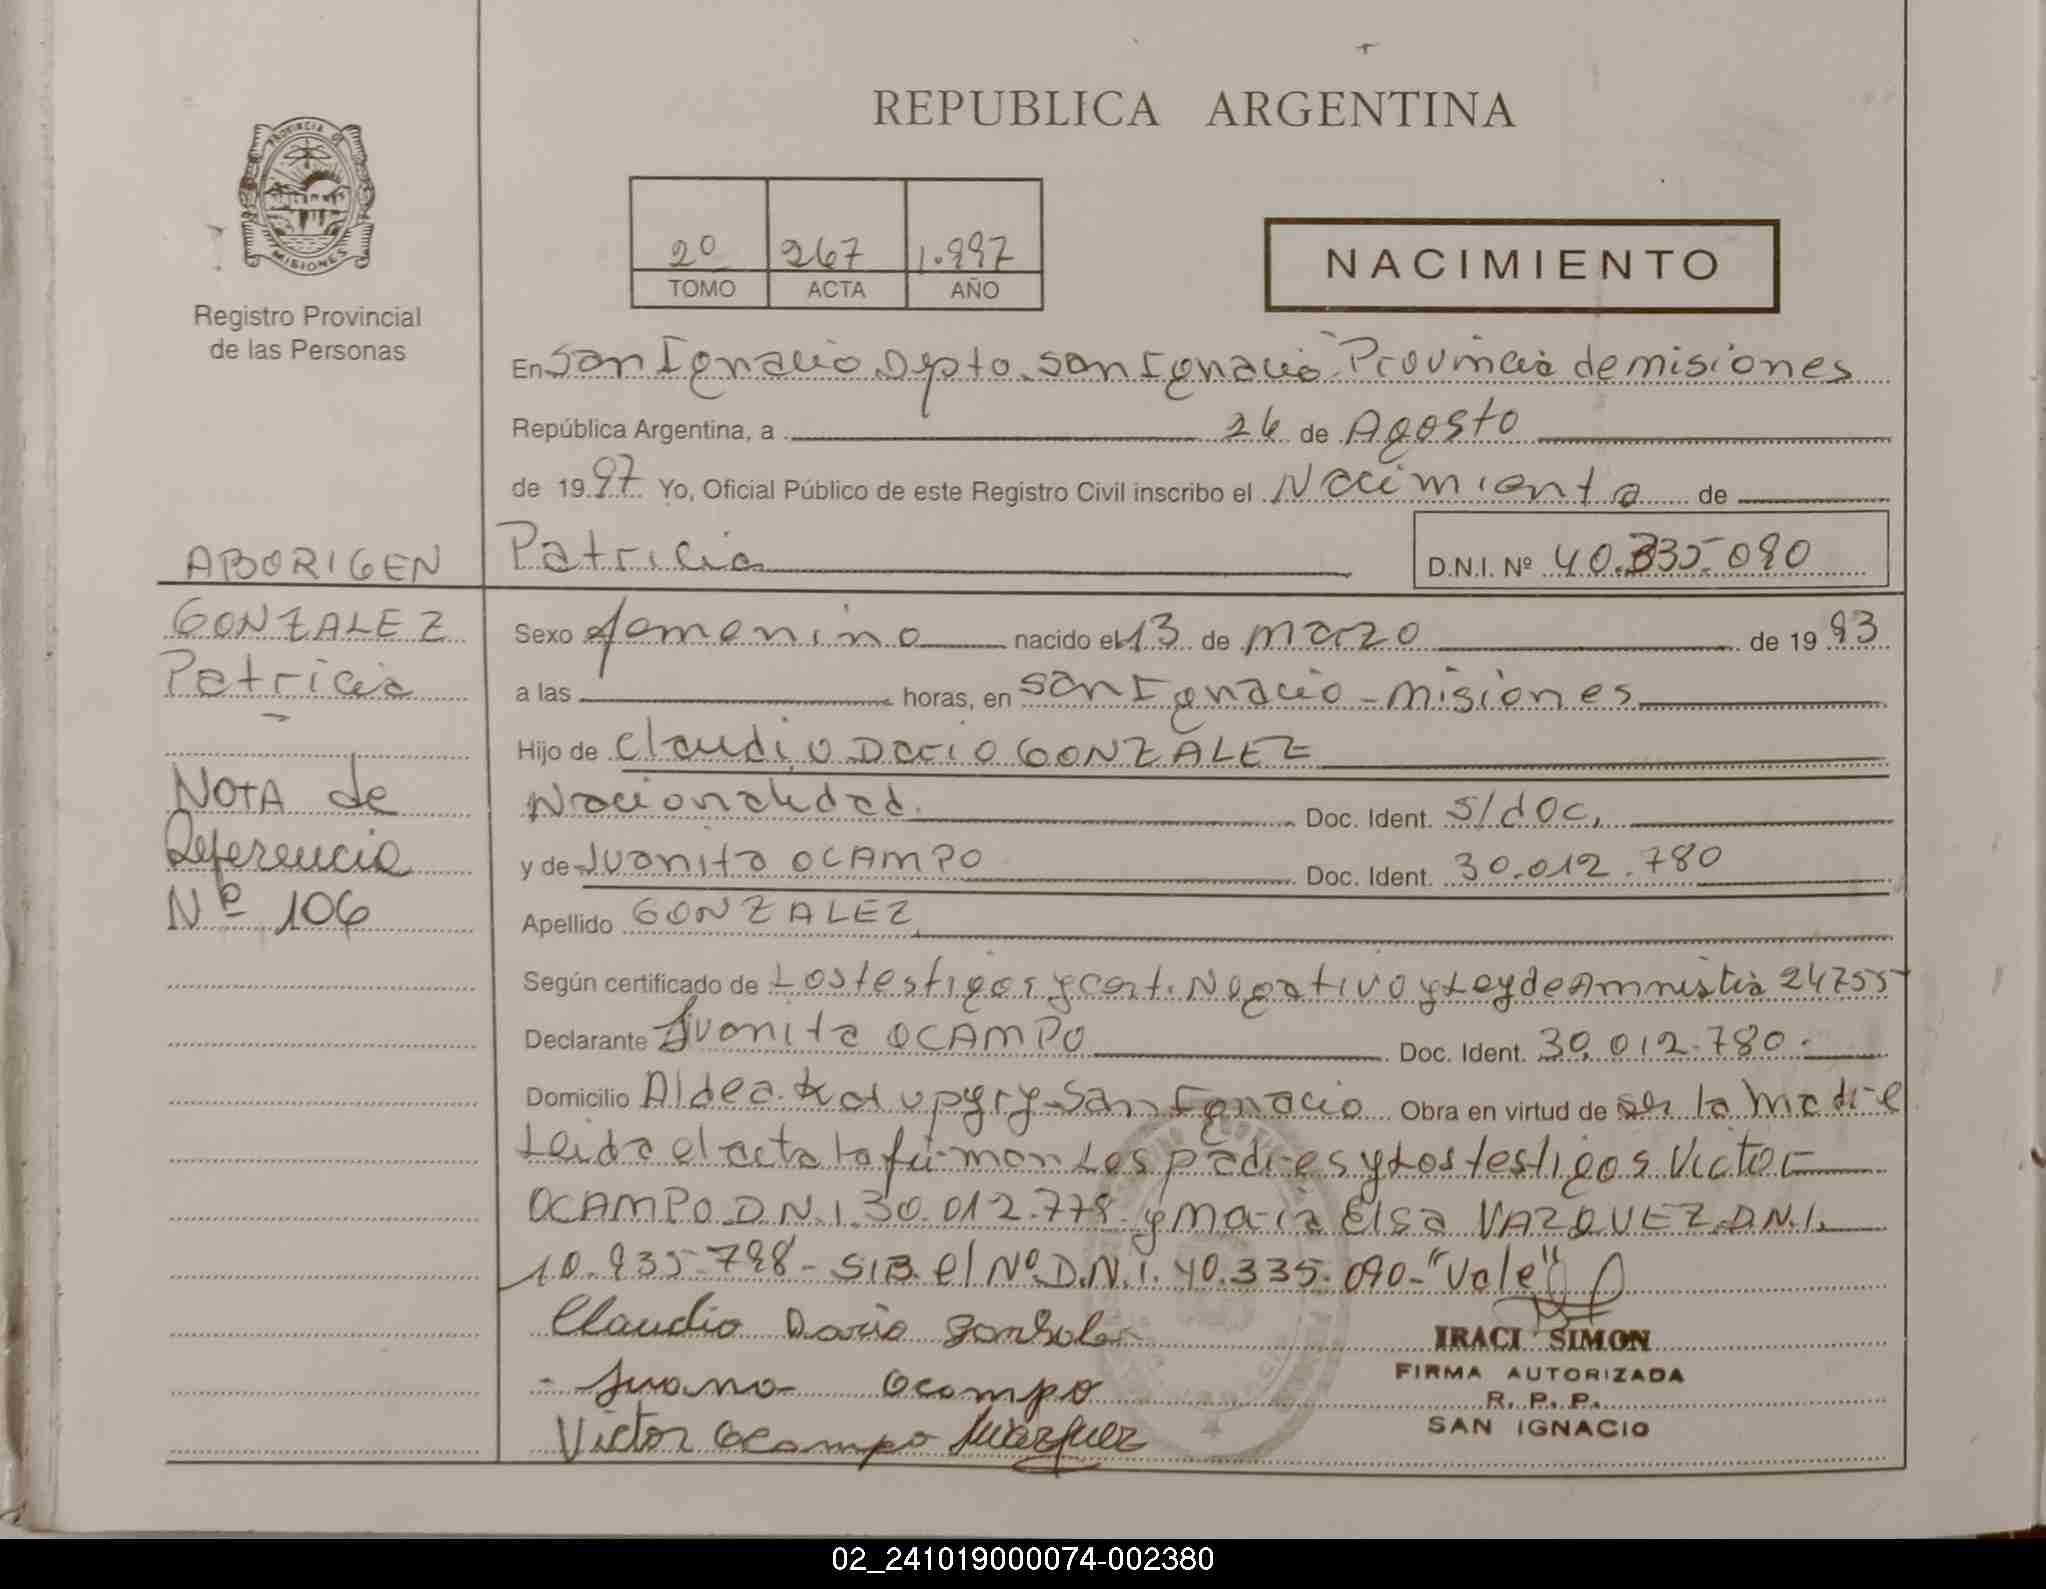 REPUBLICA ARGENTINA
PROVINCIA DE
MISIONES
Registro Provincial
de las Personas
2º 267 1.997
TOMO ACTA AÑO
NACIMIENTO
En San Ignacio Depto. San Ignacio Provincia de misiones
República Argentina, a 26 de Agosto
de 1997 Yo, Oficial Público de este Registro Civil inscribo el Nacimiento de
Patricia
D.N.I. Nº 40.335.090
ABORIGEN
GONZALEZ
Patricia
NOTA de
Referencia
Nº 106
Sexo femenino nacido el 13 de marzo de 1993
a las horas, en San Ignacio - misiones
Hijo de Claudio Dario GONZALEZ
Nacionalidad. Doc. Ident. s/doc.
y de Juanita OCAMPO Doc. Ident. 30.012.780
Apellido GONZALEZ
Según certificado de Los testigos y cert. Negativo y Ley de Amnistia 24755
Declarante Juanita OCAMPO Doc. Ident. 30.012.780.
Domicilio Aldea Katupyry-San Ignacio Obra en virtud de ser la madre
Leida el acta la firman Los padres y Los testigos Victor
OCAMPO D.N.I. 30.012.778 y Maria Elsa VAZQUEZ D.N.I.
10.935.798 - S/B. el Nº D.N.I. 40.335.090-"Vale"
Claudio Dario Gonsales
Juana Ocampo
Victor Ocampo
IRACI SIMON
FIRMA AUTORIZADA
R. P. P.
SAN IGNACIO
02_241019000074-002380